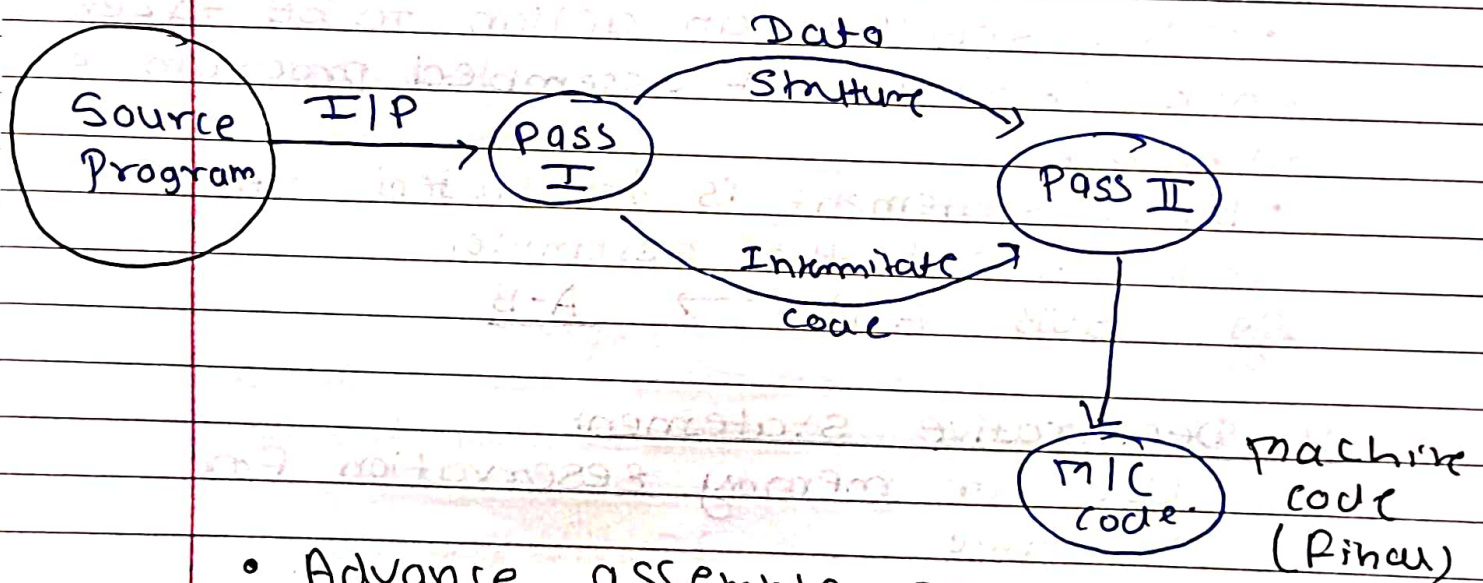 Source
Program
I/P
Pass
I
Data
Strutture
Intermitate
code
Pass II
M/C
code.
machine
code
(Final)
• Advance assemble